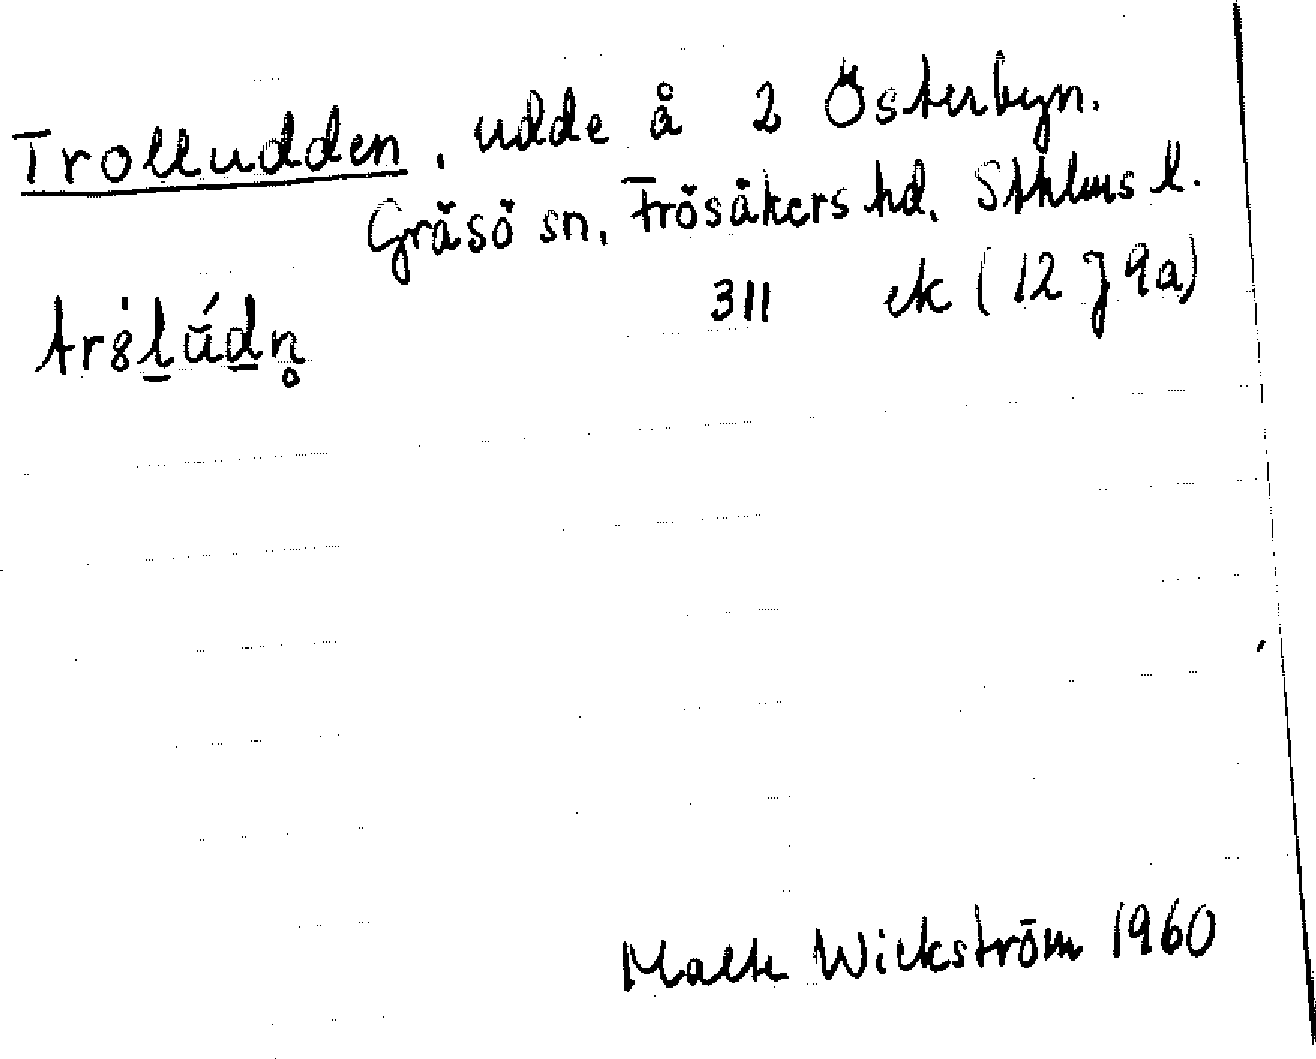 Trolludden, udde å 2 Österbyn.
Gräsö sn, Frösåkers hd, Sthlms l.
311 ek (12 J 9a)
Malte Wickström 1960